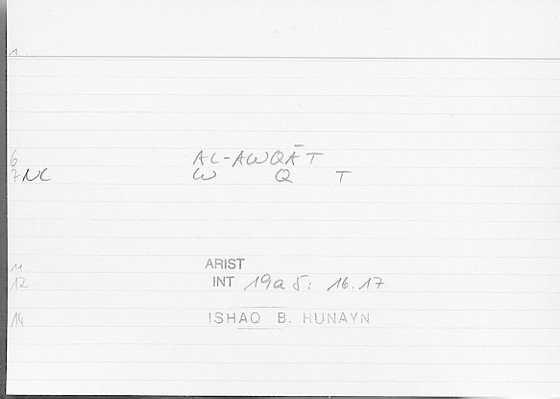 1
6 AL-AWQĀT
7 NC W Q T
11 ARIST
12 INT 19a5: 16.17
14 ISHAQ B. HUNAYN